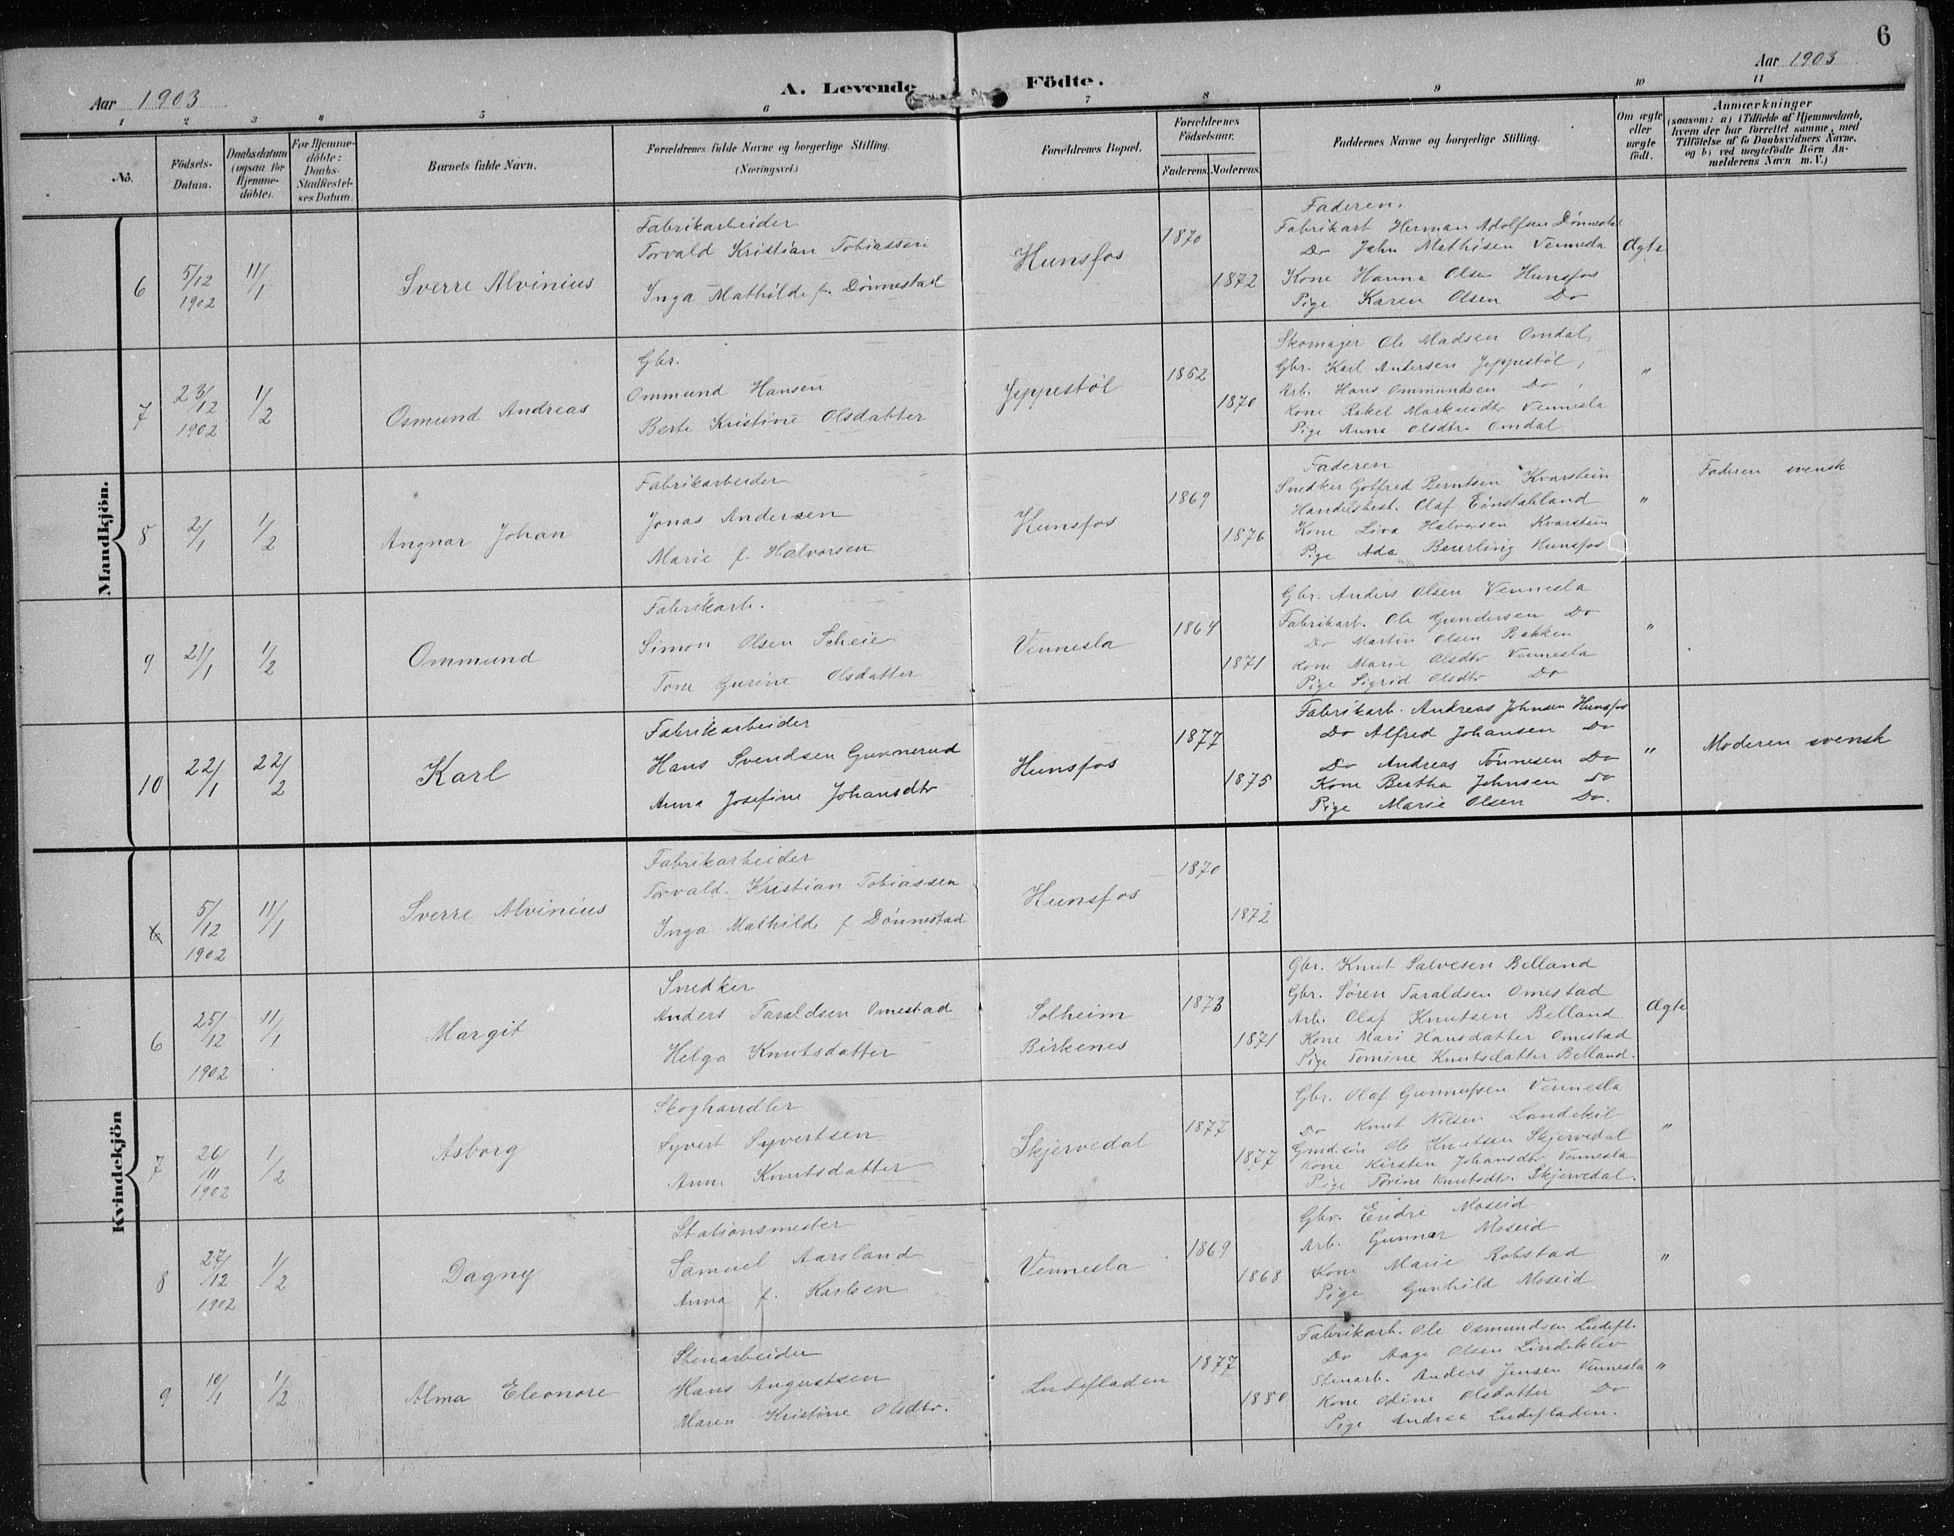 6
Aar 1903
A. Levende Födte.
Aar 1903
1 2 3 4 5 6 7 8 9 10 11
No.
Födsels-Datum.
Daabsdatum (ogsaa for Hjemmedöbte).
For Hjemmedöbte: Daabs-Stadfæstelses Datum.
Barnets fulde Navn.
Forældrenes fulde Navne og borgerlige Stilling.
(Næringsvei.)
Forældrenes Bopæl.
Forældrenes Födselsaar.
Faderens. Moderens.
Faddernes Navne og borgerlige Stilling.
Om ægte eller uægte födt.
Anmærkninger
(saasom: a) i Tilfælde af Hjemmedaab, hvem der har forrettet samme, med Tilföielse af to Daabsvidners Navne, og b) ved uægtefödte Börn Anmelderens Navn m. V.)
Mandkjön.
6 5/12 1902 11/1
Sverre Alvinius
Fabrikarbeider
Torvald Kristian Tobiassen
Inga Mathilde f. Dønnestad
Hunsfos
1870
1872
Faderen.
Fabrikarb Herman Adolfsen Dønnestad
Do John Mathisen Vennesla
Kone Hanna Olsen Hunsfos
Pige Karen Olsen Do
Ægte
7 23/12 1902 1/2
Osmund Andreas
Gbr.
Ommund Hansen
Berte Kristine Olsdatter
Jeppestøl
1852
1870
Skomager Ole Madsen Omdal
Gbr. Karl Andersen Jeppestøl
Arb. Hans Ommundsen Do
Kone Rakel Markusdtr Vennesla
Pige Anna Olsdtr Omdal
"
8 2/1 1/2
Angnar Johan
Fabrikarbeider
Jonas Andersen
Marie f. Halvorsen
Hunsfos
1869
1876
Faderen
Snedker Gotfred Berntsen Kvarstein
Handelsbest. Olaf Eonstahland
Kone Lova Halvorsen Kvarstein
Pige Ada Beurling Hunsfos
"
Faderen svensk
9 21/1 1/2
Ommund
Fabrikarb.
Simon Olsen Scheie
Tone Gurine Olsdatter
Vennesla
1864
1871
Gbr. Anders Olsen Vennesla
Fabrikarb. Ole Gundersen Do
Do Martin Olsen Bakken
Kone Marie Olsdtr Vennesla
Pige Sigrid Olsdtr Do
"
10 22/1 22/2
Karl
Fabrikarbeider
Hans Svendsen Gunnerud
Anna Josefine Johansdtr
Hunsfos
1877
1875
Fabrikarb. Andreas Johnsen Hunsfos
Do Alfred Johansen Do
Do Andreas Tønnesen Do
Kone Bertha Johnsen Do
Pige Marie Olsen Do.
"
Moderen svensk
Kvindekjön
6 5/12 1902 11/1
Sverre Alvinius
Fabrikarbeider
Torvald. Kristian Tobiassen
Inga Mathilde f Dønnestad
Hunsfos
1870
1872
6 25/12 1902 11/1
Margit
Snedker
Anders Taraldsen Omestad
Helga Knutsdatter
Solheim
Birkenes
1873
1871
Gbr. Knut Salvesen Belland
Gbr. Søren Taraldsen Omestad
Arb. Olaf Knutsen Belland
Kone Mari Hansdatter Omestad
Pige Tomine Knutsdatter Belland.
Ægte
7 26/11 1902 1/2
Asborg
Skoghandler
Syvert Syvertsen
Anne Knutsdatter
Skjervedal
1877
1877
Gbr. Olaf Gunnufsen Vennesla
Do Knut Nilsen Landekil
Gmdsøn Ole Knutsen Skjervedal
Kone Kirsten Johansdtr Vennesla
Pige Torine Knutsdtr. Skjervedal.
"
8 27/12 1902 1/2
Dagny
Stationsmester
Samuel Aarsland
Anna f. Karlsen
Vennesla
1869
1868
Gbr. Endre Moseid
Arb. Gunnar Moseid
Kone Marie Robstad
Pige Gunhild Moseid
"
9 10/1 1/2
Alma Eleonore
Stenarbeider
Hans Augustsen
Maren Kristine Olsdtr.
Ludefladen
1877
1880
Fabrikarb. Ole Osmundsen Ludefl.
Do Aage Olsen Lindeklev
Stenarb. Anders Jensen Vennesla
Kone Odine Olsdatter Do
Pige Andrea Ludefladen.
"